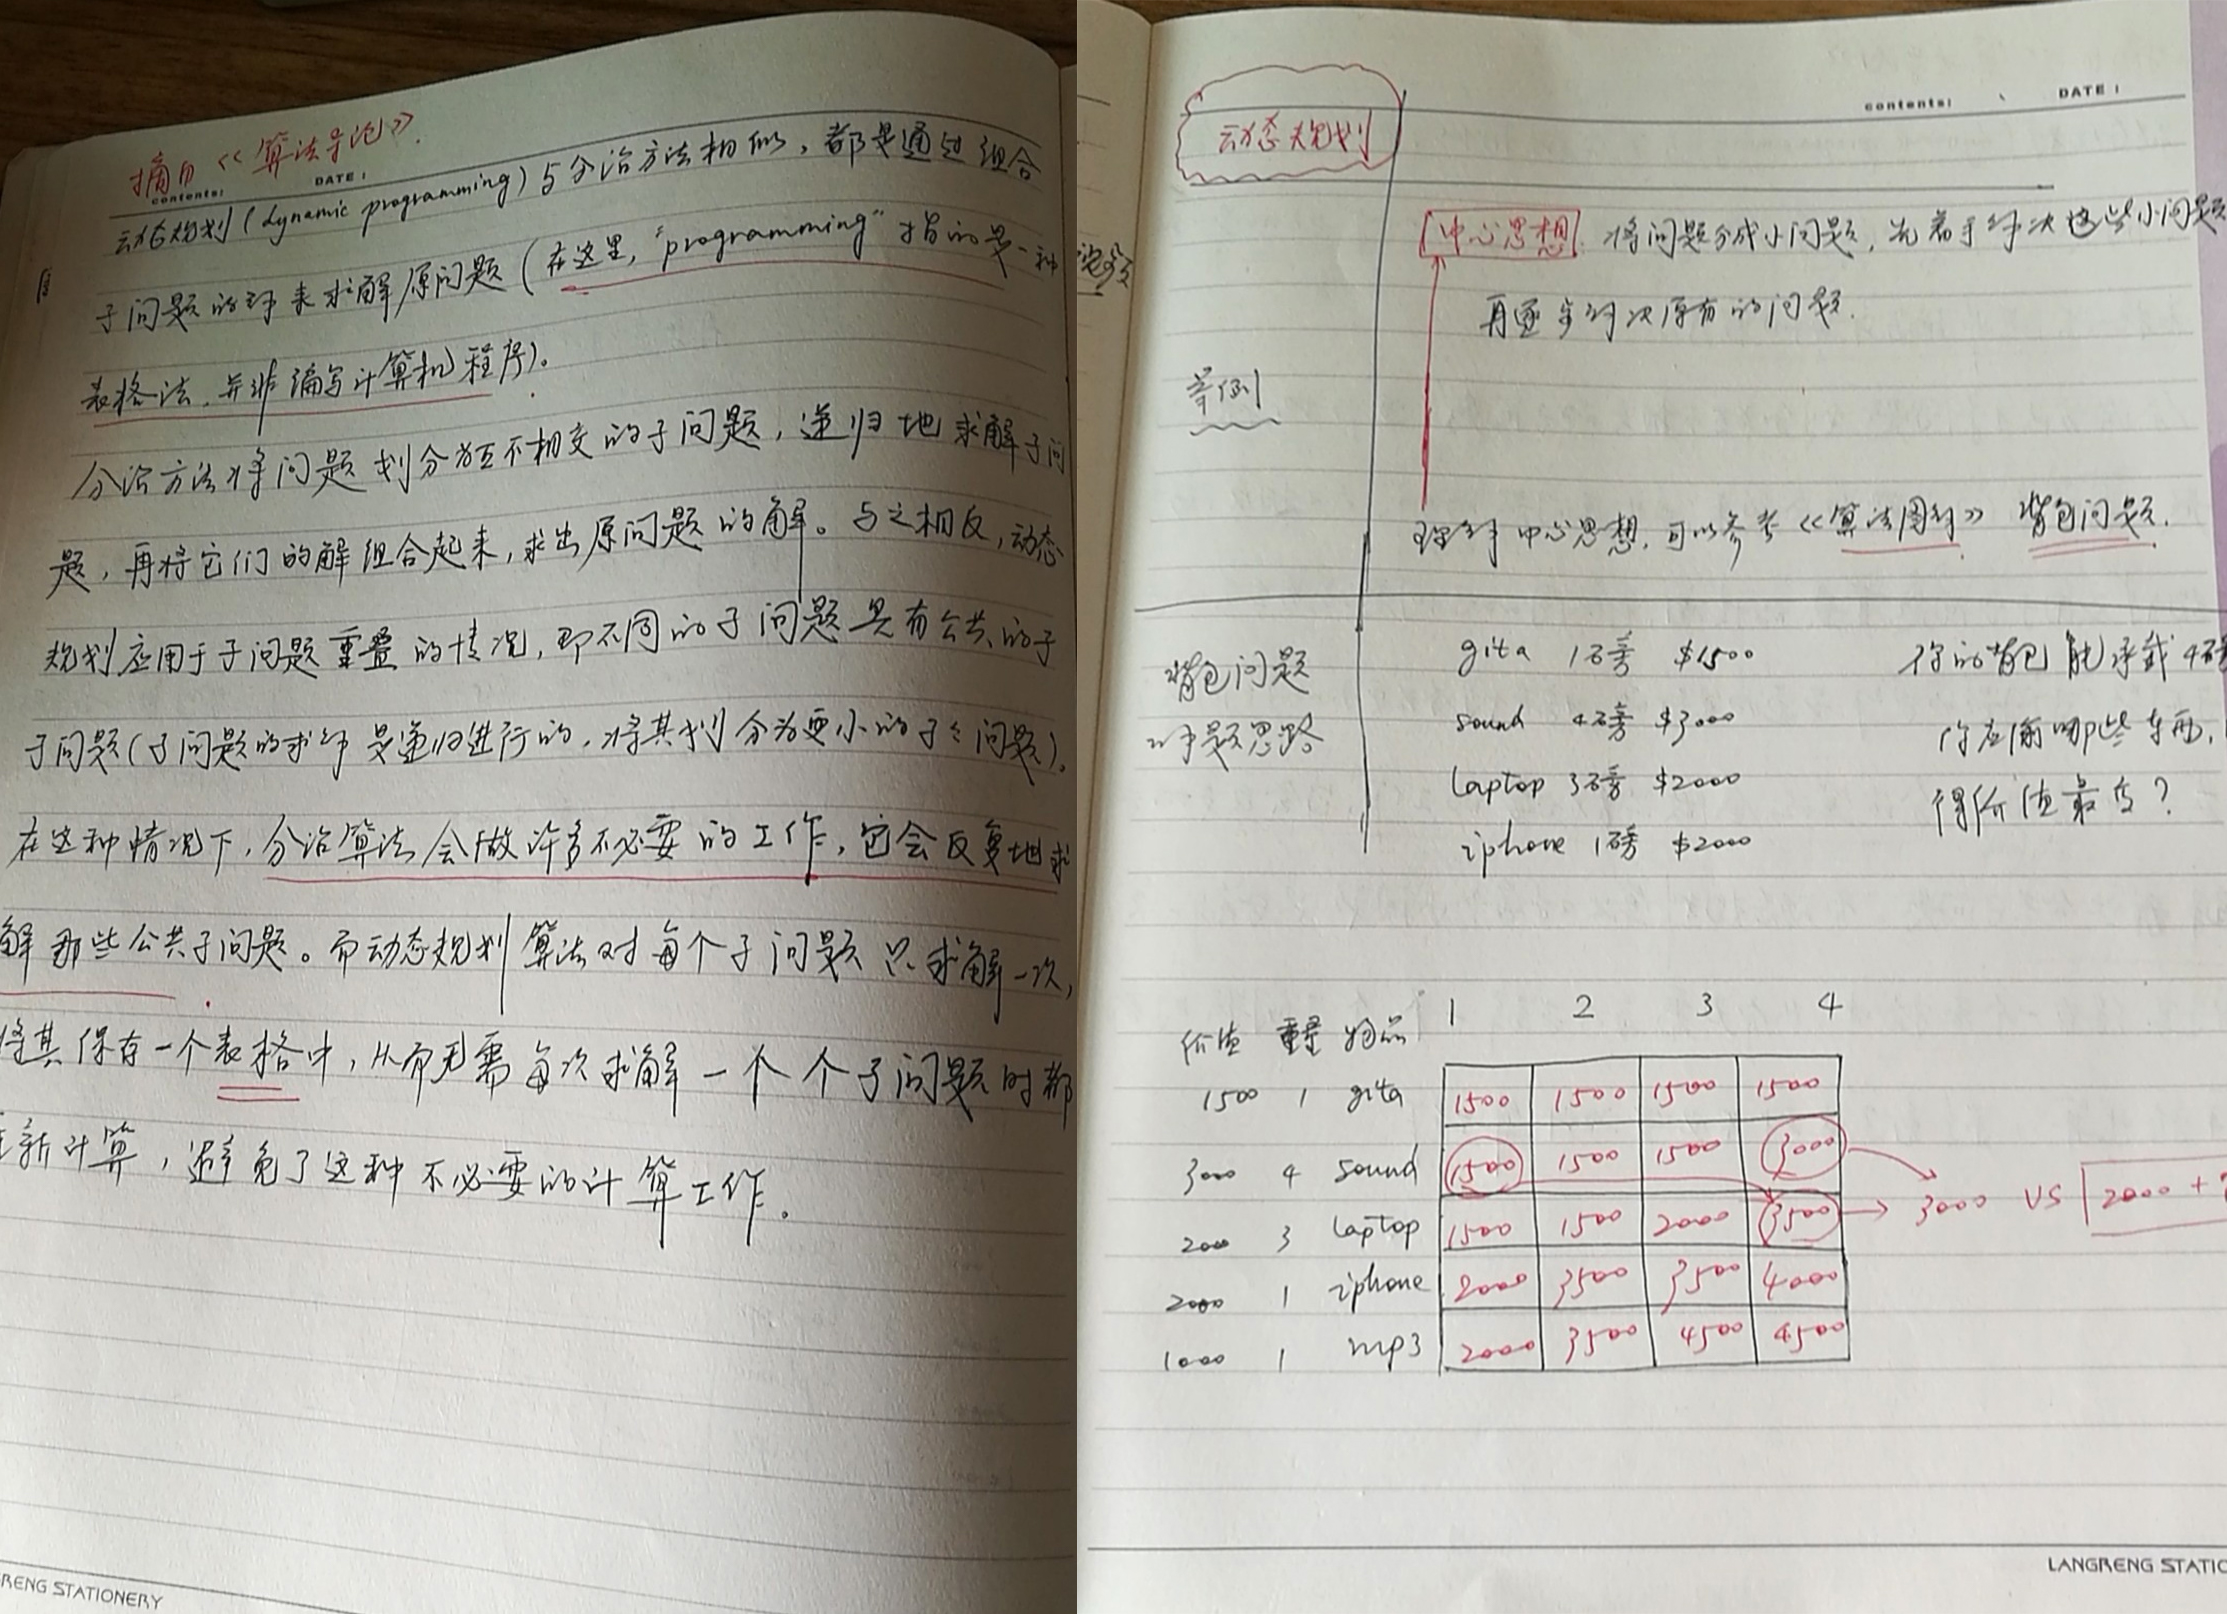 摘自《算法导论》.
contents:
DATE:
动态规划(dynamic programming)与分治方法相似，都是通过组合
子问题的解来求解原问题(在这里，"programming"指的是一种
表格法，并非编写计算机程序)。
分治方法将问题划分为互不相交的子问题，递归地求解子问
题，再将它们的解组合起来，求出原问题的解。与之相反，动态
规划应用于子问题重叠的情况，即不同的子问题具有公共的子
子问题(子问题的求解是递归进行的，将其划分为更小的子子问题)。
在这种情况下，分治算法会做许多不必要的工作，它会反复地求
解那些公共子问题。而动态规划算法对每个子问题只求解一次，
将其保存一个表格中，从而无需每次求解一个个子问题时都
新计算，避免了这种不必要的计算工作。
RENG STATIONERY
contents:
DATE:
动态规划
中心思想 将问题分成小问题，先着手解决这些小问题
再逐步解决原有的问题.
举例
理解中心思想，可以参考《算法图解》 背包问题.
背包问题
解题思路
gita 1磅 $1500
sound 4磅 $3000
laptop 3磅 $2000
iphone 1磅 $2000
你的背包能承载4磅
你应偷哪些东西，
得价值最高？
价值 重量 物品 1 2 3 4
1500 1 gita 1500 1500 1500 1500
3000 4 sound 1500 1500 1500 3000
2000 3 laptop 1500 1500 2000 3500 → 3000 VS 2000 +
2000 1 iphone 2000 3500 3500 4000
1000 1 mp3 2000 3500 4500 4500
LANGRENG STATIO